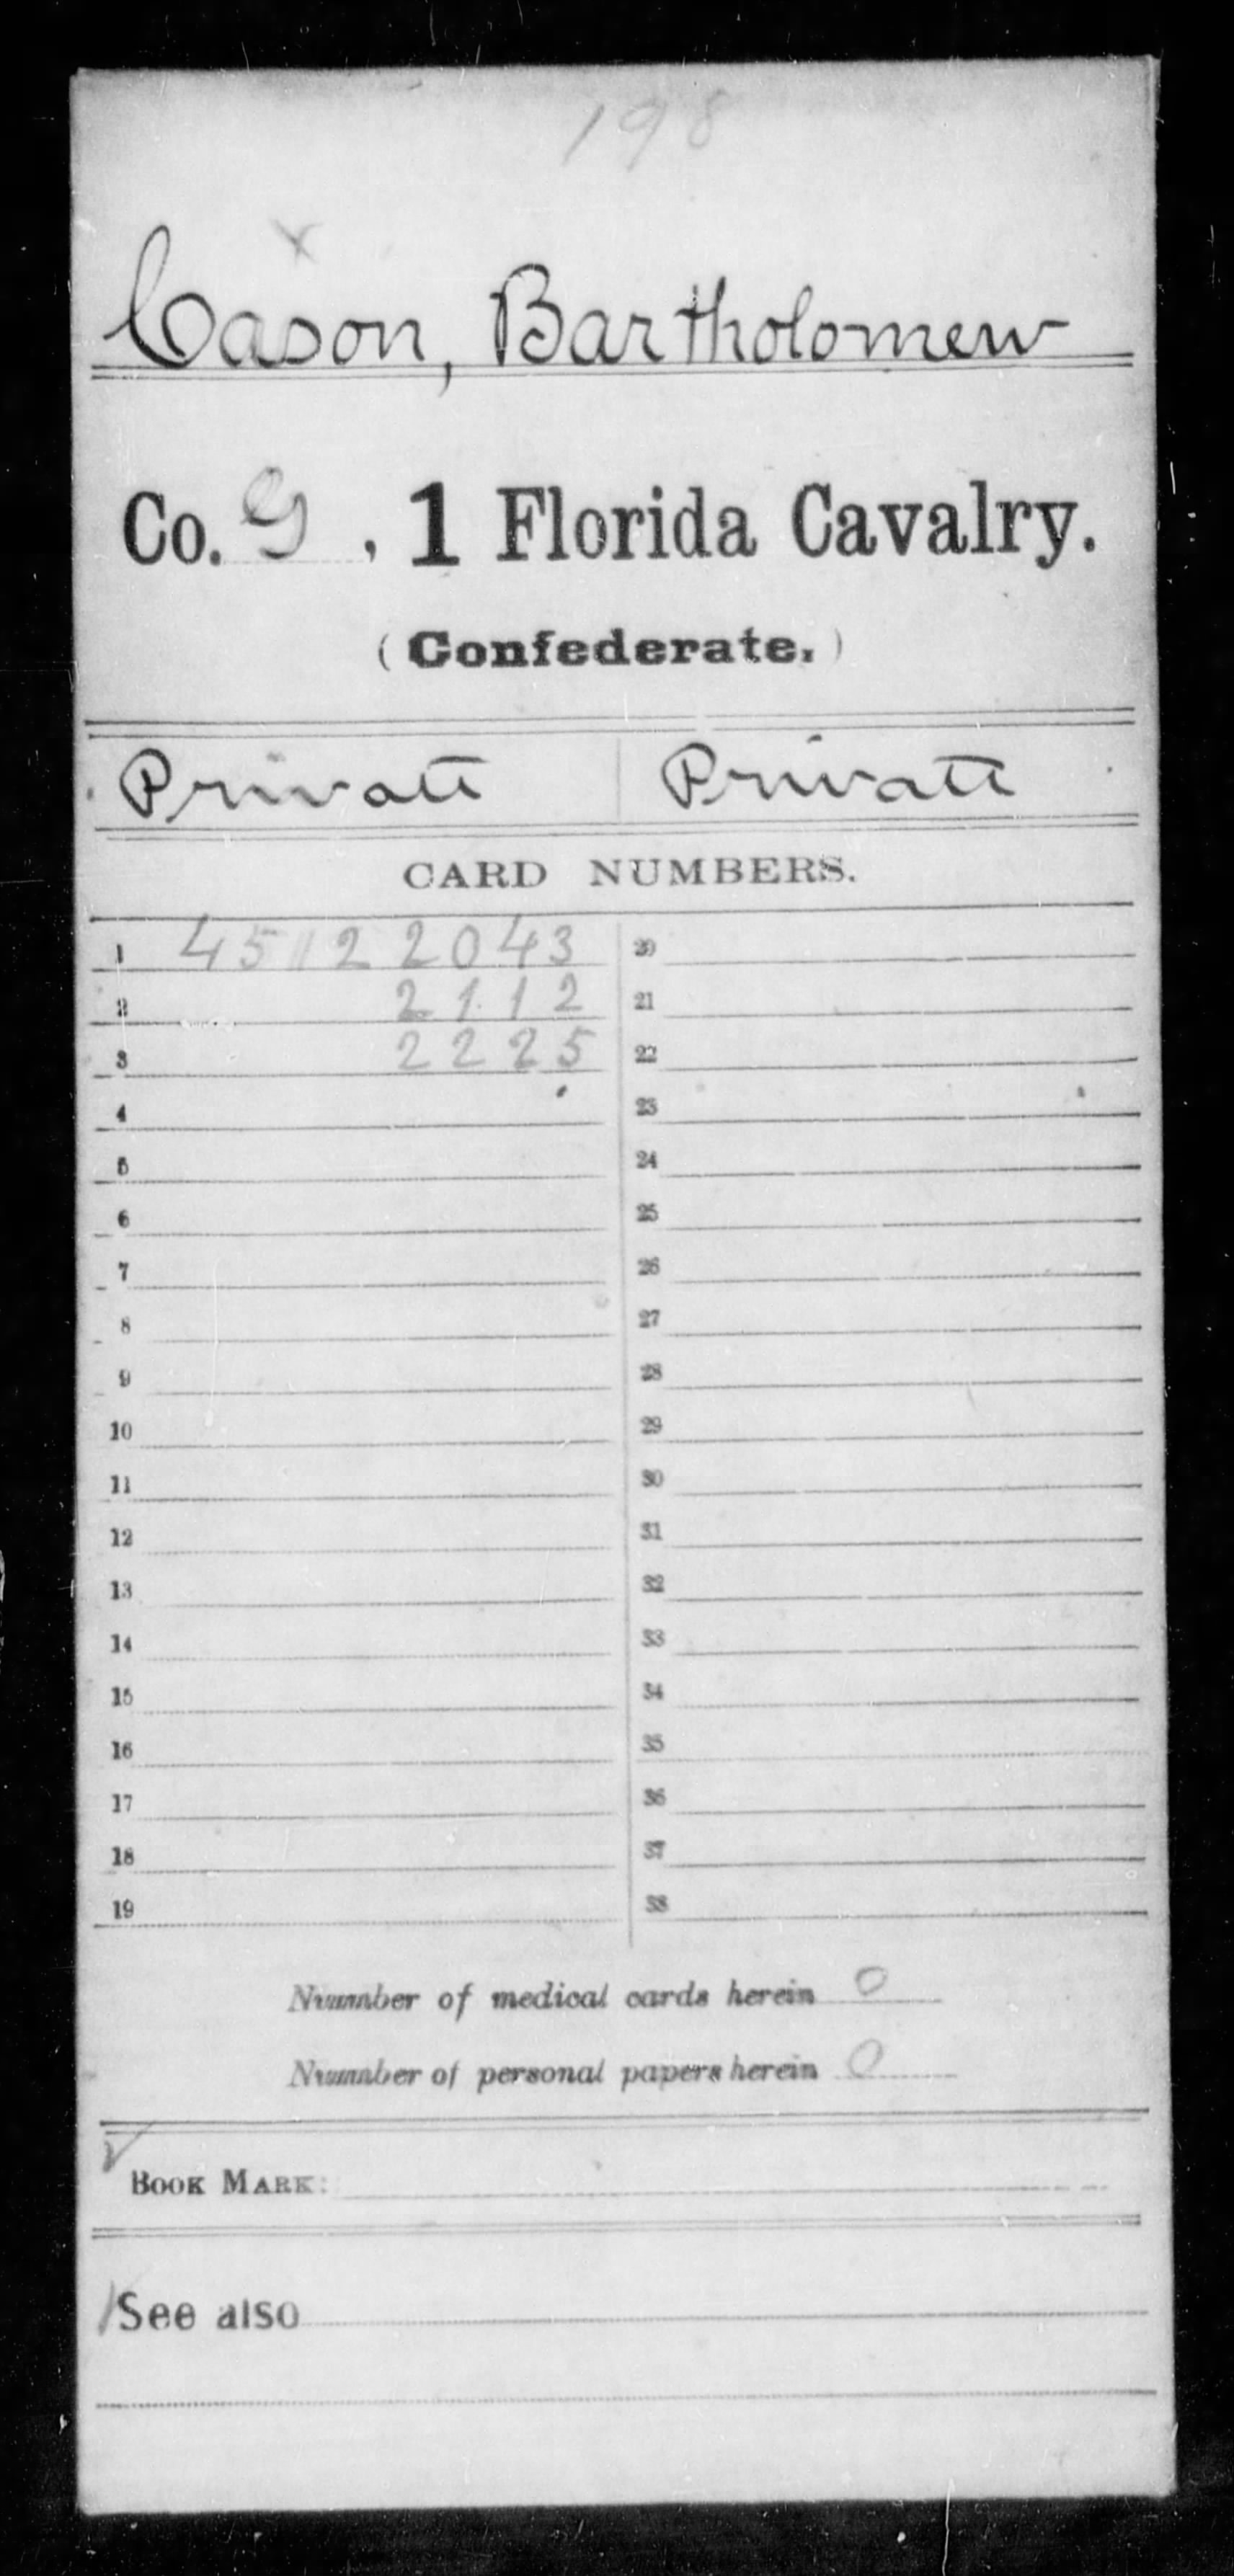 198
x
Cason, Bartholomew
Co. G, 1 Florida Cavalry.
(Confederate.)
Private Private
CARD NUMBERS.
1 45122043 20
2 2112 21
3 2225 22
4 23
5 24
6 25
7 26
8 27
9 28
10 29
11 30
12 31
13 32
14 33
15 34
16 35
17 36
18 37
19 38
Number of medical cards herein 0
Number of personal papers herein 0
BOOK MARK:
See also